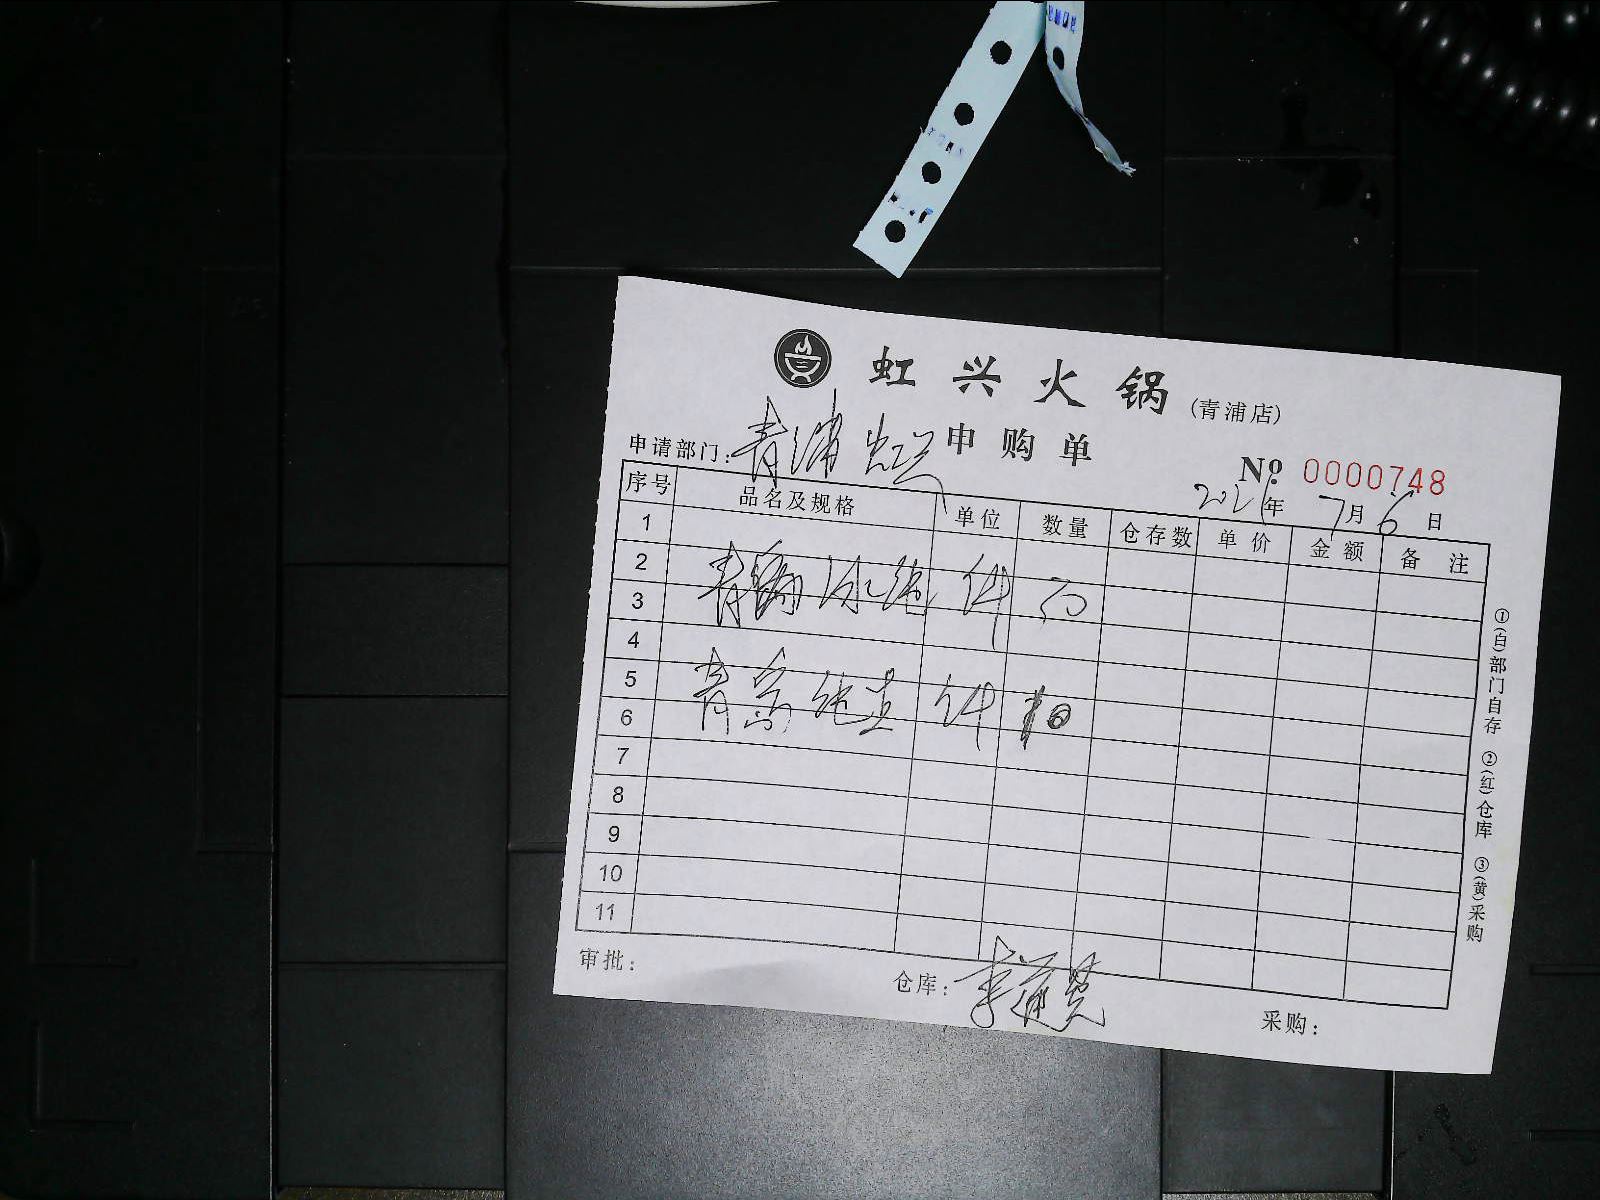 虹兴火锅(青浦店)
申购单
申请部门:青浦虹兴
№ 0000748
2021年7月6日
序号 品名及规格 单位 数量 仓存数 单价 金额 备注
1
2
3
青岛纯生 件
4
5
6
7
8
9
10
11
①(白)部门自存 ②(红)仓库 ③(黄)采购
审批: 仓库: 采购: